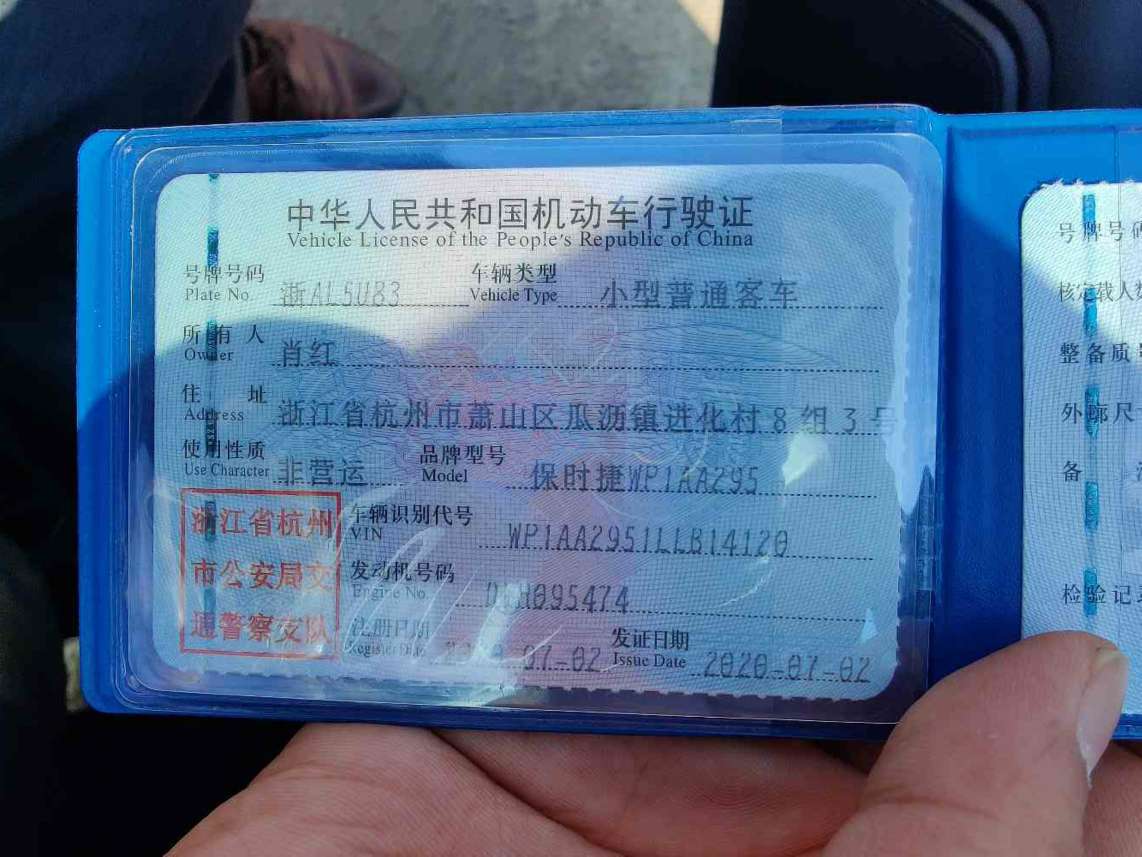 中华人民共和国机动车行驶证
Vehicle License of the People's Republic of China
号牌号码 浙AL5U83 车辆类型 小型普通客车
Plate No. Vehicle Type
所有人 肖红
Owner
住址 浙江省杭州市萧山区瓜沥镇进化村8组3号
Address
使用性质 非营运 品牌型号 保时捷WP1AA295
Use Character Model
浙江省杭州
市公安局交
通警察支队
车辆识别代号 WP1AA2951LLB14120
VIN
发动机号码
Engine No.
注册日期 2020-07-02 发证日期 2020-07-02
Register Date Issue Date
号牌号码
核定载人
整备质
外廓尺
备
检验记